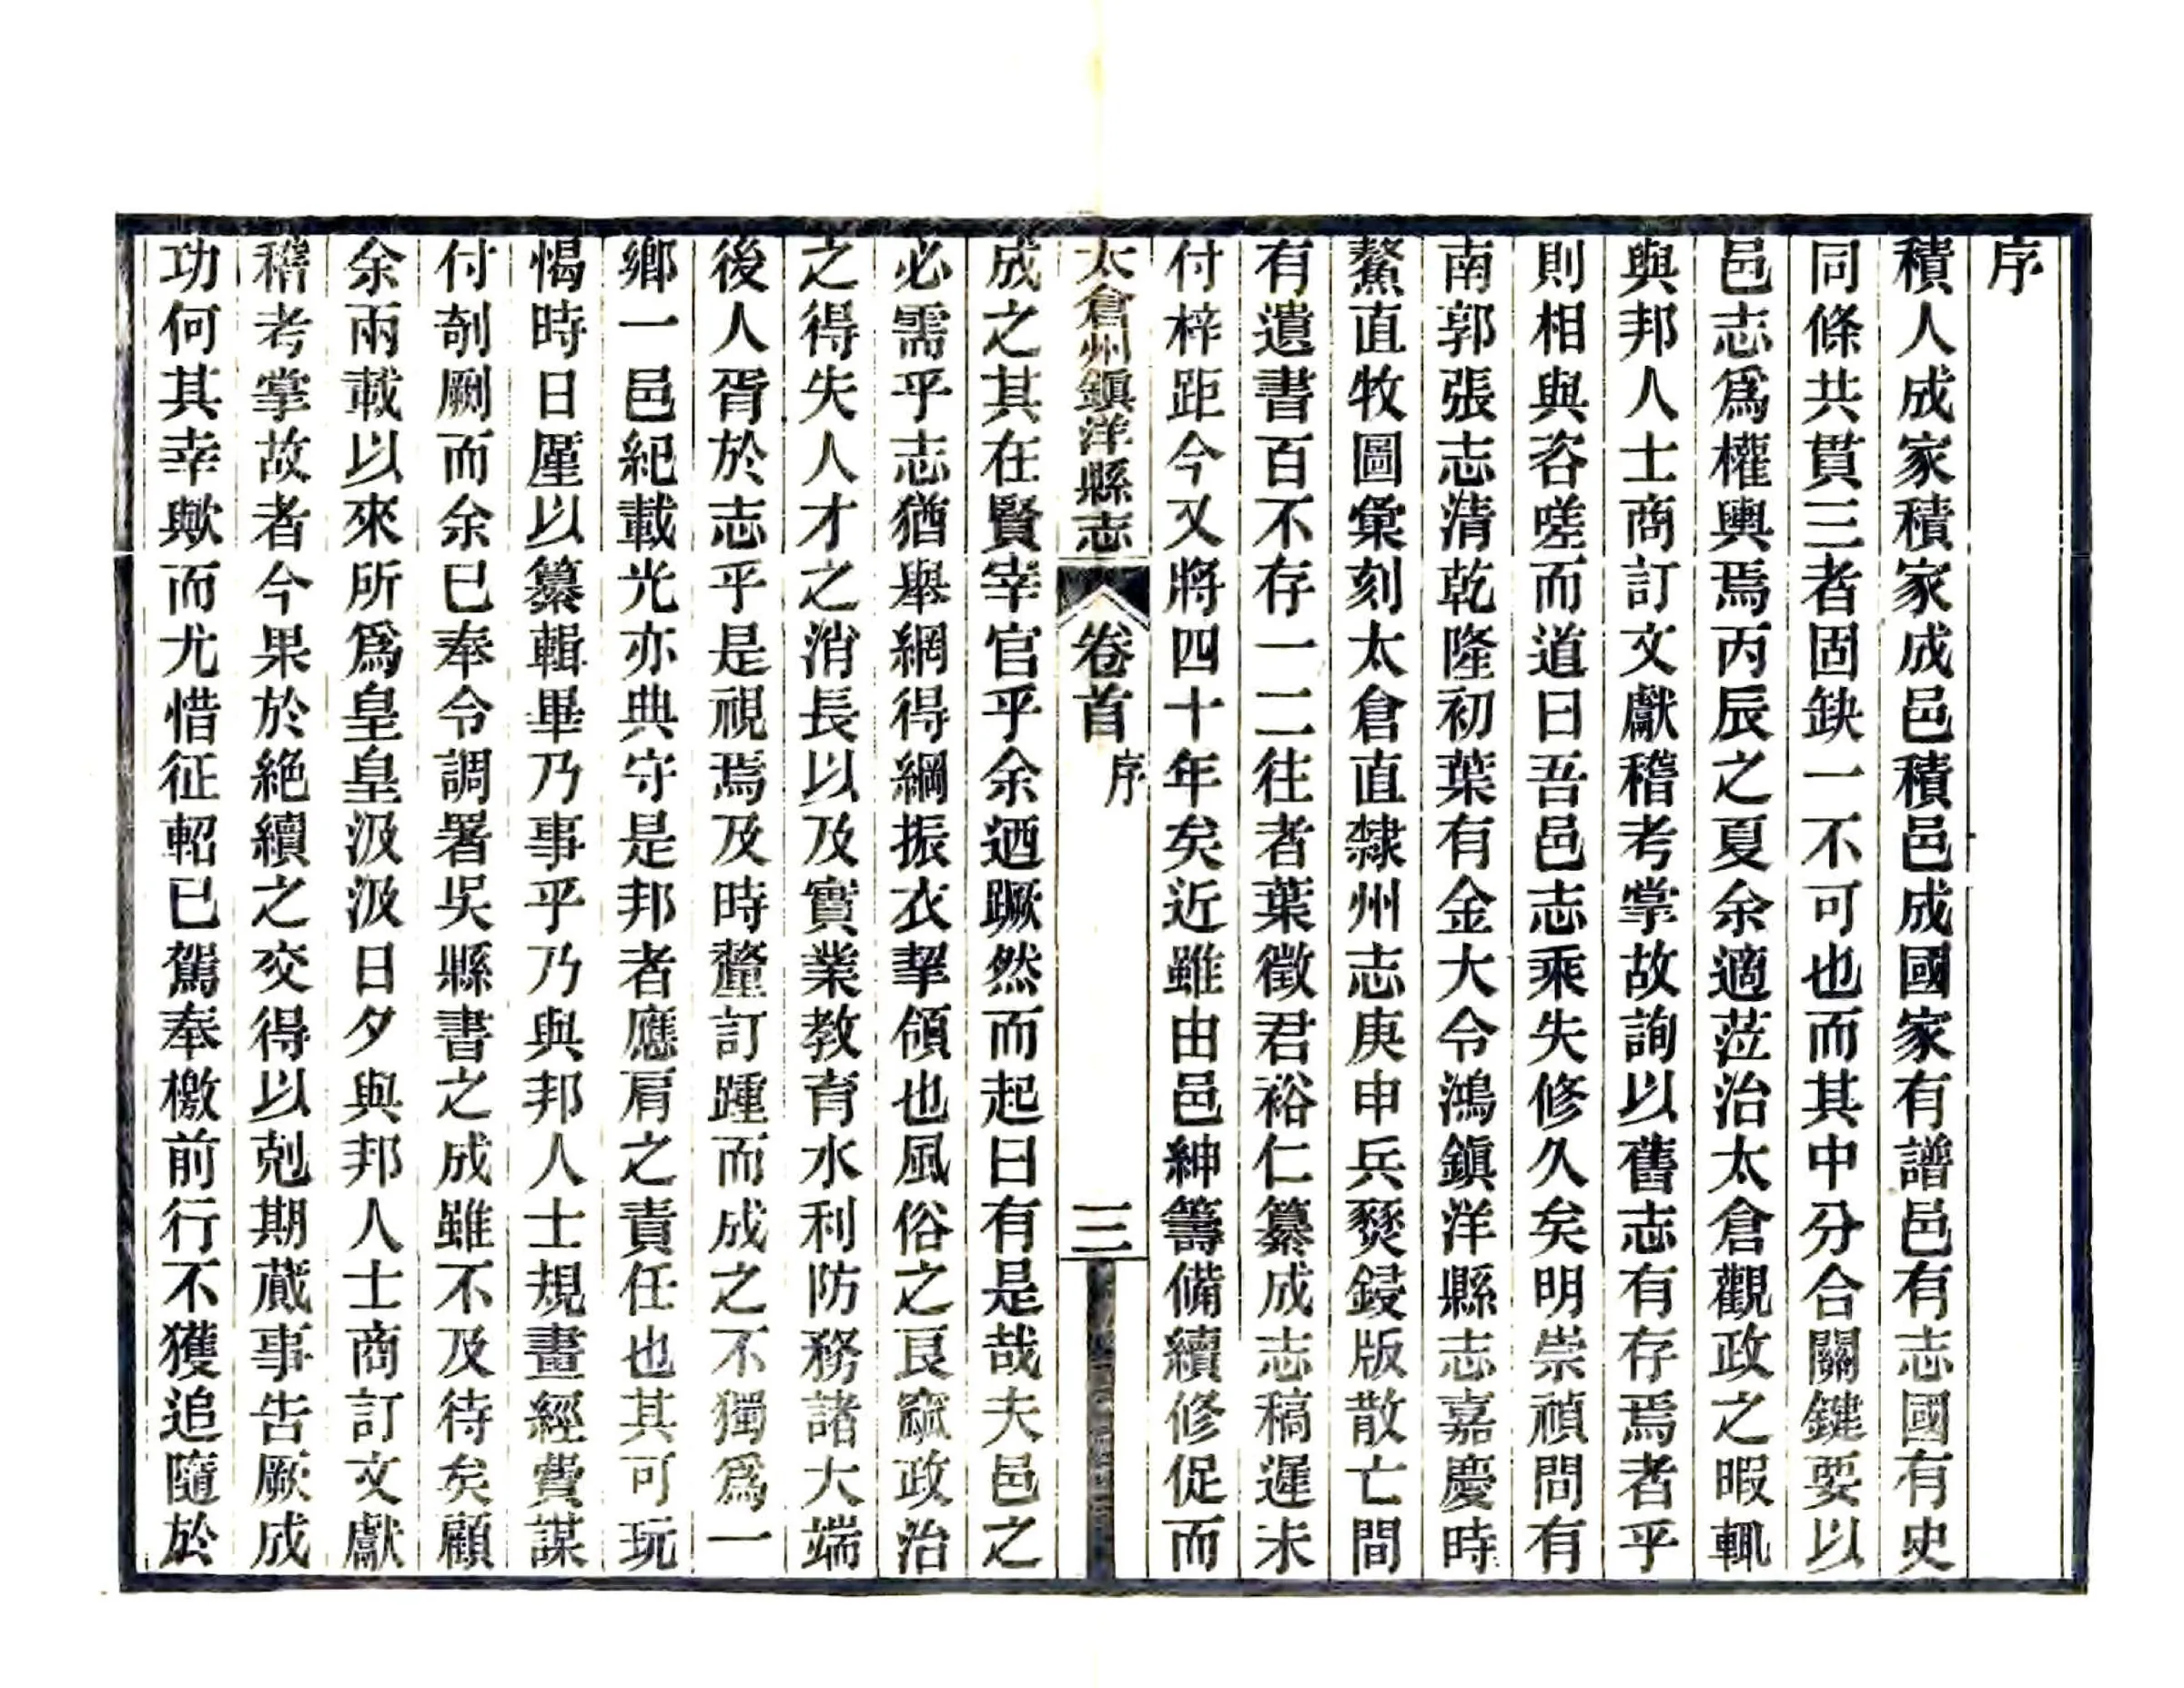 序
積人成家積家成邑積邑成國家有譜邑有志國有史
同條共貫三者固缺一不可也而其中分合關鍵要以
邑志爲權輿焉丙辰之夏余適蒞治太倉觀政之暇輒
與邦人士商訂文獻稽考掌故詢以舊志有存焉者乎
則相與咨嗟而道曰吾邑志乘失修久矣明崇禎問有
南郭張志淸乾隆初葉有金大令鴻鎭洋縣志嘉慶時
鰲直牧圖彙刻太倉直隸州志庚申兵燹鋟版散亡間
有遺書百不存一二往者葉徵君裕仁纂成志稿遲未
付梓距今又將四十年矣近雖由邑紳籌備續修促而
太倉州鎭洋縣志
卷首
序
三
成之其在賢宰官乎余迺蹶然而起曰有是哉夫邑之
必需乎志猶舉網得綱振衣挈領也風俗之良窳政治
之得失人才之消長以及實業教育水利防務諸大端
後人胥於志乎是視焉及時釐訂踵而成之不獨爲一
鄉一邑紀載光亦典守是邦者應肩之責任也其可玩
愒時日厪以纂輯畢乃事乎乃與邦人士規畫經費謀
付剞劂而余已奉令調署吳縣書之成雖不及待矣顧
余兩載以來所爲皇皇汲汲日夕與邦人士商訂文獻
稽考掌故者今果於絕續之交得以剋期蕆事告厥成
功何其幸歟而尤惜征軺已駕奉檄前行不獲追隨於